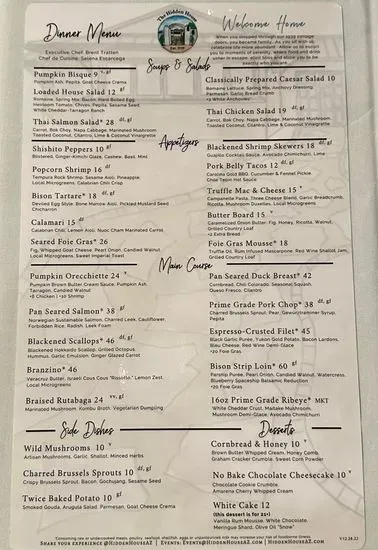 Dinner Menu
Executive Chef: Brent Tratten
Chef de Cuisine: Selena Estarcega
The Hidden House
Welcome Home
When you stepped through our 1939 vintage
doors, you became family. As you sit with us,
celebrate life more abundant. Allow us to escort
you to moments of serenity, where food and drink
usher in escape, elicit bliss and allow you to be
exactly who you are.
Soups & Salads
Pumpkin Bisque 9 v, gf
Ants, Pepita, Goat Cheese Crema
Loaded House Salad 12 gf
Romaine, Spring Mix, Bacon, Hard Boiled Egg,
Heirloom Tomato, Chives, Pepita, Sesame Seed
White Cheddar-Tarragon Ranch
Thai Salmon Salad* 28 df, gf
Carrot, Bok Choy, Napa Cabbage, Marinated Mushroom
Toasted Coconut, Cilantro, Lime & Coconut Vinaigrette
Classically Prepared Caesar Salad 10
Romaine Lettuce, Spring Mix, Anchovy Dressing,
Parmesan, Garlic Bread Crumb
+3 White Anchovies
Thai Chicken Salad 19 df, gf
Carrot, Bok Choy, Napa Cabbage, Marinated Mushroom,
Toasted Coconut, Cilantro, Lime & Coconut Vinaigrette
Appetizers
Shishito Peppers 10 gf
Blistered, Ginger-Kimchi Glaze, Cashew, Basil, Mint
Popcorn Shrimp 16 df
Tempura Rock Shrimp, Sesame Aioli, Pineapple,
Local Microgreens, Calabrian Chili Crisp
Bison Tartare* 18 df, gf
Deviled Egg Style, Bone Marrow Aioli, Pickled Mustard Seed
Chicharron
Calamari 15 df
Calabrian Chili, Lemon Aioli, Nuoc Cham Marinated Carrot
Seared Foie Gras* 26
Fig, Whipped Goat Cheese, Pearl Onion, Candied Walnut
Local Microgreens, Sweet Imperial Toast
Blackened Shrimp Skewers 18 df, gf
Guajillo Cocktail Sauce, Avocado Chimichurri, Lime
Pork Belly Tacos 12 df, gf
Carolina Gold BBQ, Cucumber & Fennel Pickle,
Chile Tepin Hot Sauce
Truffle Mac & Cheese 15 v
Campanelle Pasta, Three Cheese Blend, Garlic Breadcrumb,
Ricotta, Mushroom Duxelles, Local Microgreens
Butter Board 15 v
Caramelized Onion Butter, Fig, Honey, Ricotta, Walnut,
Grilled Country Loaf
+2 Extra Bread
Foie Gras Mousse* 18
Truffle Oil, Rum Infused Mascarpone, Red Wine Shallot Jam,
Grilled Country Loaf
Main Course
Pumpkin Orecchiette 24 v
Pumpkin Brown Butter Cream Sauce, Pumpkin Ash,
Tarragon, Candied Walnut
+8 Chicken | +10 Shrimp
Pan Seared Salmon* 38 gf
Norwegian Sustainable Salmon, Charred Leek, Cauliflower,
Forbidden Rice, Radish, Leek Foam
Blackened Scallops* 46 df, gf
Blackened Hokkaido Scallop, Grilled Octopus,
Hummus, Garlic Emulsion, Ginger Glazed Carrot
Branzino* 46
Veracruz Butter, Israeli Cous Cous "Rossotto," Lemon Zest,
Local Microgreens
Braised Rutabaga 24 v
Marinated Mushroom, Kombu Broth, Vegetarian Dumpling
Pan Seared Duck Breast* 42
Cornbread, Chili Colorado, Seasonal Squash,
Queso Fresco, Cilantro
Prime Grade Pork Chop* 38 df, gf
Charred Brussels Sprout, Pear, Gewürztraminer Syrup,
Pepita
Espresso-Crusted Filet* 45
Black Garlic Puree, Yukon Gold Potato, Bacon Lardons,
Bleu Cheese, Red Wine Demi-Glace
+20 Foie Gras
Bison Strip Loin* 60 gf
Parsnip Puree, Pearl Onion, Candied Walnut, Watercress,
Blueberry Spaceship Balsamic Reduction
+20 Foie Gras
16oz Prime Grade Ribeye* MKT
White Cheddar Crust, Maitake Mushroom,
Mushroom Demi-Glace, Avocado Chimichurri
Side Dishes
Wild Mushrooms 10 v
Artisan Mushrooms, Garlic, Shallot, Minced Herbs
Charred Brussels Sprouts 10 df, gf
Crispy Brussels Sprout, Bacon, Gochujang, Sesame Seed
Twice Baked Potato 10 gf
Smoked Gouda, Arugula Salad, Parmesan, Goat Cheese Crema
Desserts
Cornbread & Honey 10 v
Brown Butter Whipped Cream, Honey Comb,
Graham Cracker Crumble, Sweet Corn Powder
No Bake Chocolate Cheesecake 10 v
Chocolate Cookie Crumble,
Amarena Cherry Whipped Cream
White Cake 12
(this dessert is for 21+)
Vanilla Rum Mousse, White Chocolate,
Meringue Shard, Olive Oil "Snow"
*Consuming raw or undercooked meats, poultry, seafood, shellfish, eggs or unpasteurized milk may increase your risk of foodborne illness.
Share your experience @HiddenHouseAZ | Events: Events@HiddenHouseAZ.com
V12.28.22